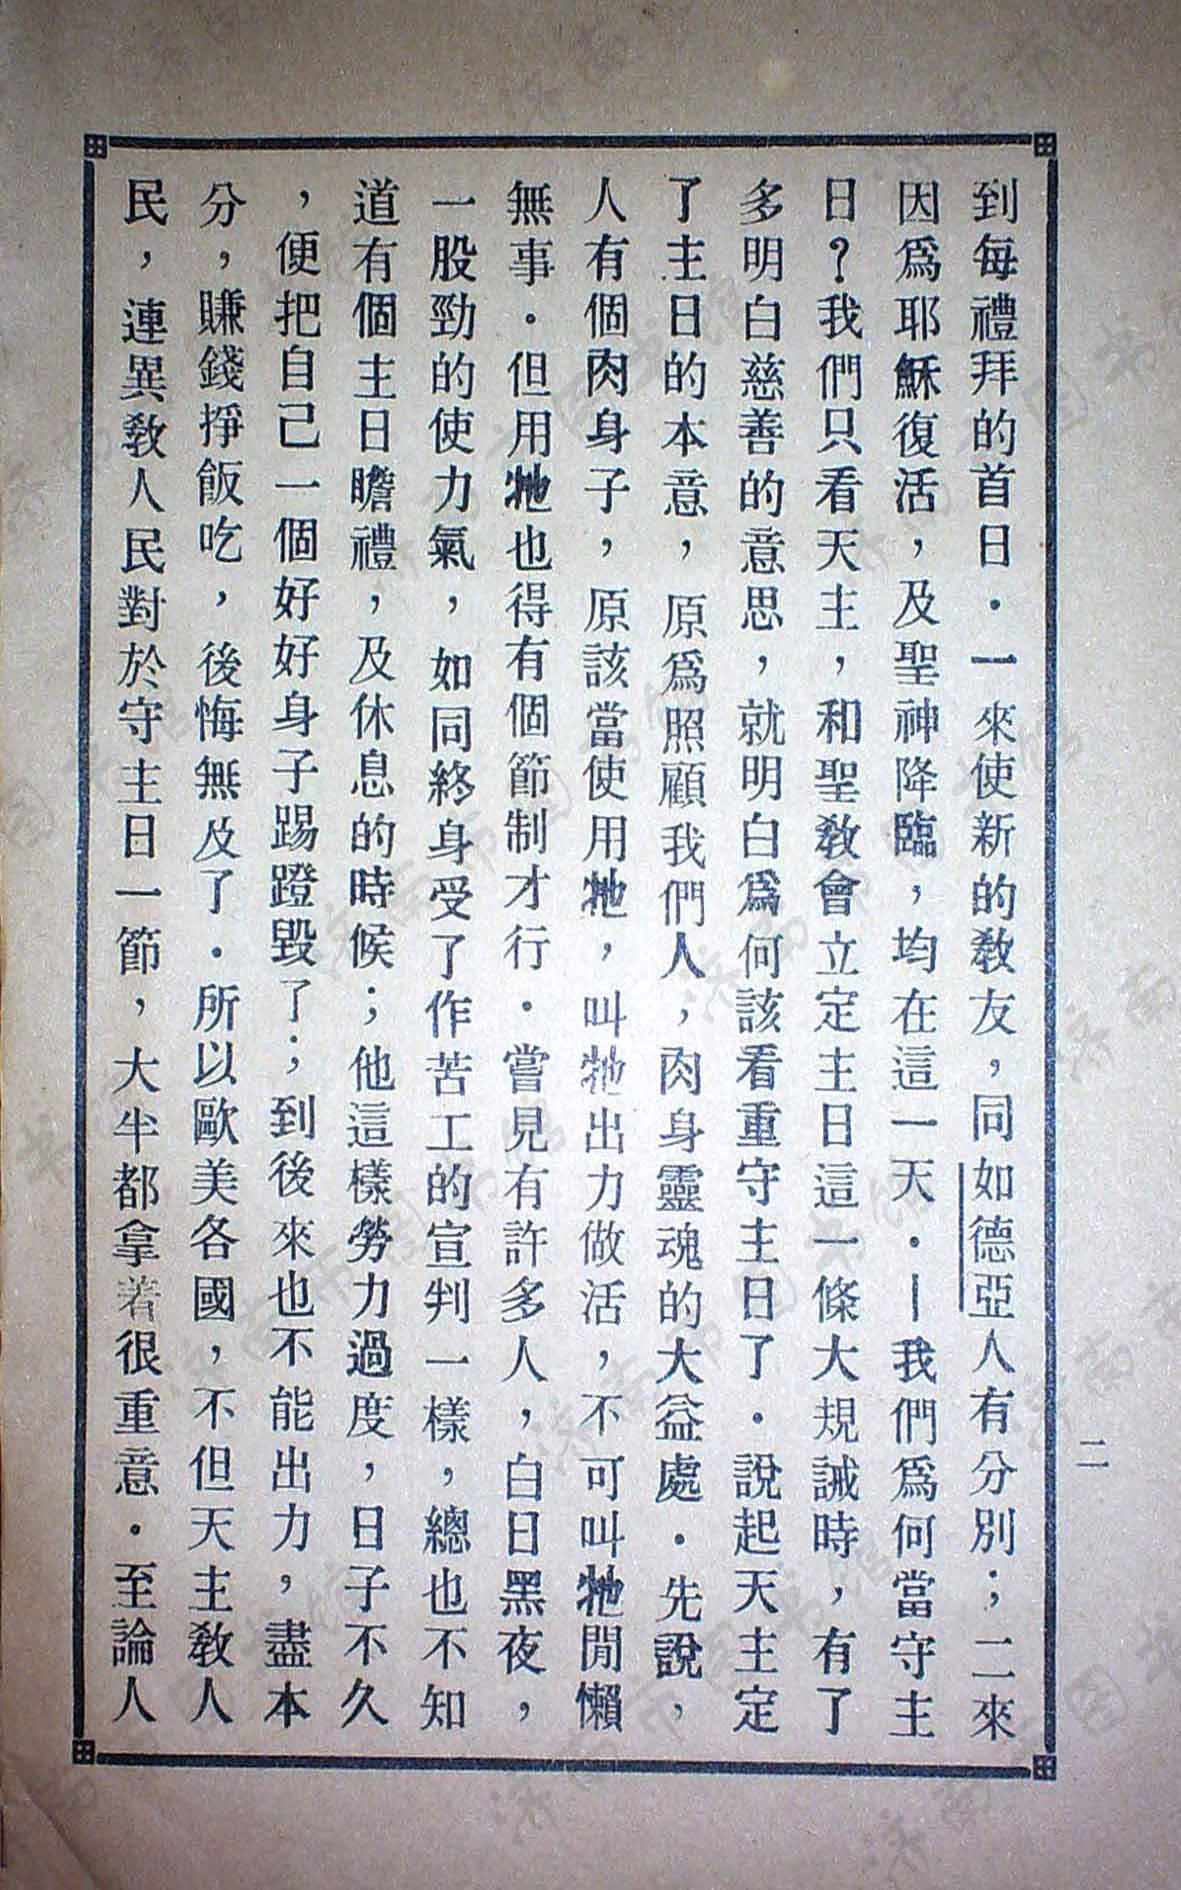 到每禮拜的首日．一來使新的敎友，同如德亞人有分別；二來
因爲耶穌復活，及聖神降臨，均在這一天．—我們爲何當守主
日？我們只看天主，和聖敎會立定主日這一條大規誡時，有了
多明白慈善的意思，就明白爲何該看重守主日了．說起天主定
了主日的本意，原爲照顧我們人，肉身靈魂的大益處．先說，
人有個肉身子，原該當使用牠，叫牠出力做活，不可叫牠閒懶
無事．但用牠也得有個節制才行．嘗見有許多人，白日黑夜，
一股勁的使力氣，如同終身受了作苦工的宣判一樣，總也不知
道有個主日瞻禮，及休息的時候；他這樣勞力過度，日子不久
，便把自己一個好好身子踢蹬毀了；到後來也不能出力，盡本
分，賺錢掙飯吃，後悔無及了．所以歐美各國，不但天主敎人
民，連異敎人民對於守主日一節，大半都拿着很重意．至論人
二
济南市图书馆